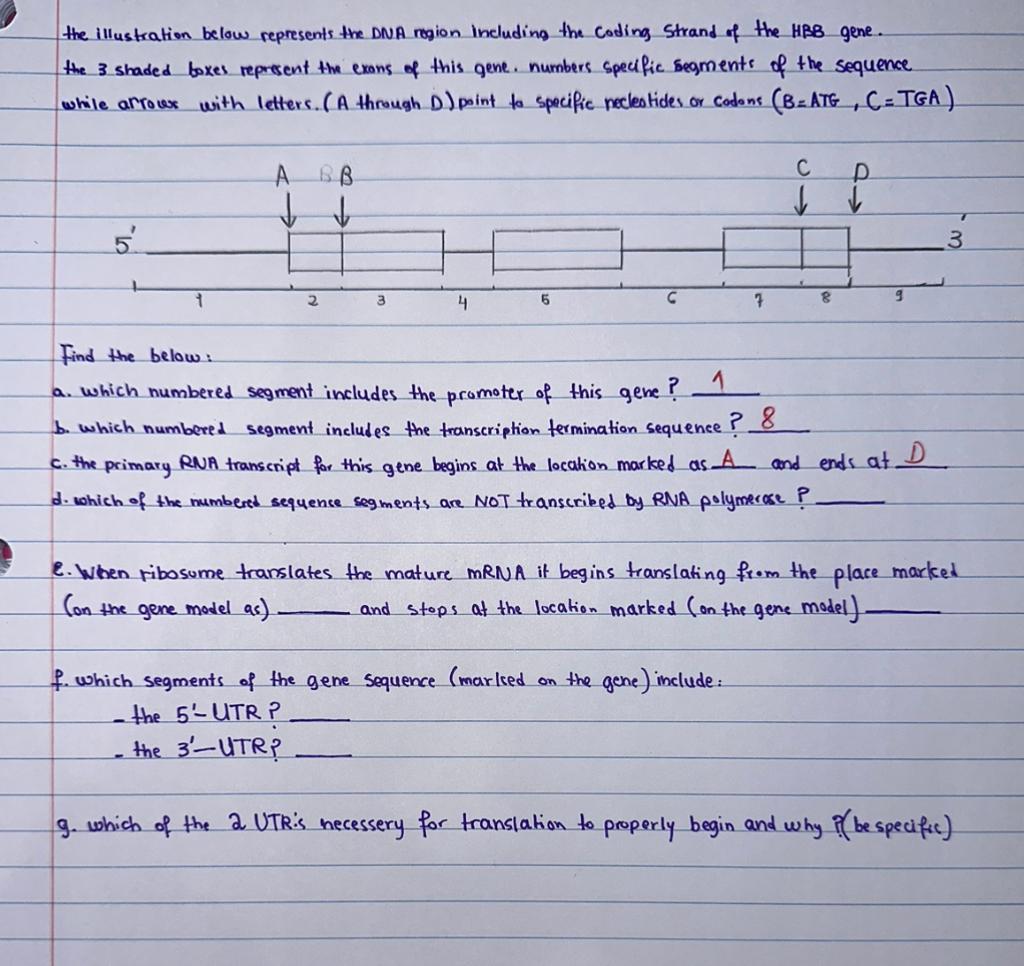 the illustration below represents the DNA region including the Coding Strand of the HBB gene.
the 3 shaded boxes represent the exons of this gene. numbers specific segments of the sequence
while arrows with letters. (A through D) point to specific necleotides or codons (B=ATG, C=TGA)
A B B C D
5' 3'
1 2 3 4 5 6 7 8 9
Find the below:
a. which numbered segment includes the promoter of this gene? 1
b. which numbered segment includes the transcription termination sequence? 8
c. the primary RNA transcript for this gene begins at the location marked as A and ends at D
d. which of the numbered sequence segments are NOT transcribed by RNA polymerase?
e. When ribosome translates the mature mRNA it begins translating from the place marked
(on the gene model as) and stops at the location marked (on the gene model)
f. which segments of the gene sequence (marked on the gene) include:
- the 5'-UTR?
- the 3'-UTR?
g. which of the 2 UTR's necessery for translation to properly begin and why ?(be specific)